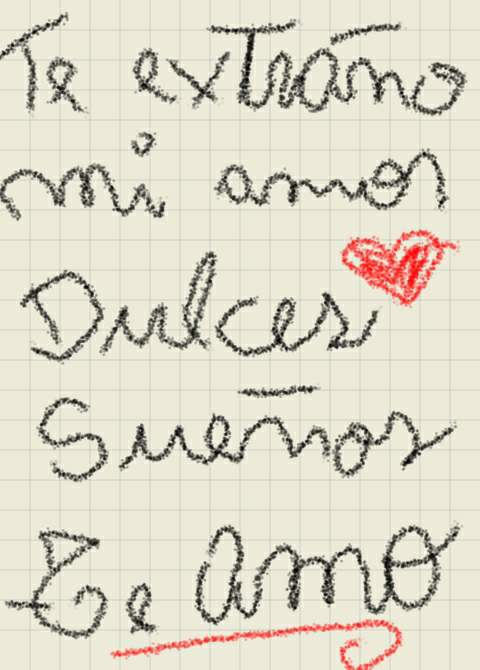 Te extraño
mi amor
Dulces
Sueños
Te amo